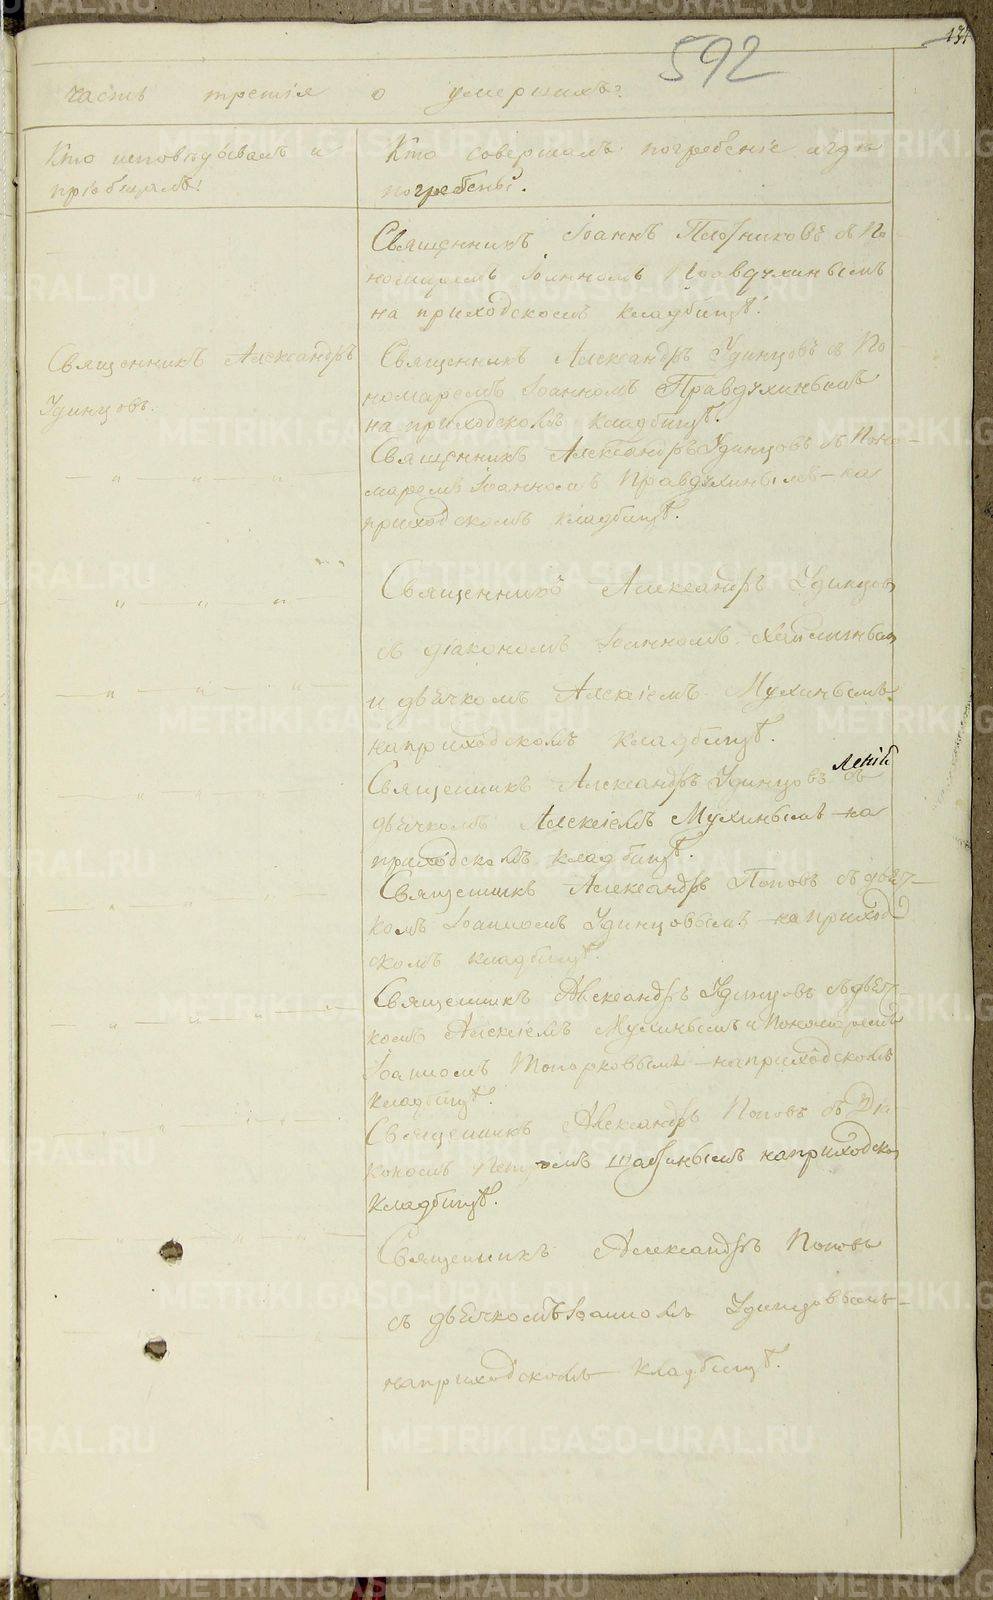 592
часть третія о умершихъ.
Кто исповѣдывалъ и
пріобщалъ.
Кто совершалъ погребеніе и гдѣ
погребены.
Священникъ Іоаннъ Плотниковъ съ По
номаремъ Іоанномъ Правдухинымъ
на приходскомъ кладбищѣ.
Священникъ Александръ
Удинцовъ.
Священникъ Александръ Удинцовъ съ По
номаремъ Іоанномъ Правдухинымъ
на приходскомъ кладбищѣ.
Священникъ Александръ Удинцовъ съ Поно-
маремъ Іоанномъ Правдухинымъ – на
приходскомъ кладбищѣ.
— „ — „ — „ —
Священникъ Александръ Удинцов
съ діакономъ Іоанномъ
и дьячкомъ Алексіемъ Мухинымъ
на приходскомъ кладбищѣ.
— „ — „ — „ —
Священникъ Александръ Удинцовъ съ
дьячкомъ Алексіемъ Мухинымъ – на
приходскомъ кладбищѣ.
Священникъ Александръ Поповъ съ дьяч-
комъ Іоанномъ Удинцовымъ – на приход
скомъ кладбищѣ.
Священникъ Александръ Удинцовъ съ дьяч-
комъ Алексіемъ Мухинымъ и Пономаремъ
Іоанномъ Топорковымъ – на приходскомъ
кладбищѣ.
Священникъ Александръ Поповъ съ Діа
кономъ Петромъ на приходско
кладбищѣ.
Священникъ Александръ Поповъ
съ дьячкомъ Іоанномъ Удинцовымъ –
на приходскомъ кладбищѣ.
METRIKI.GASO-URAL.RU